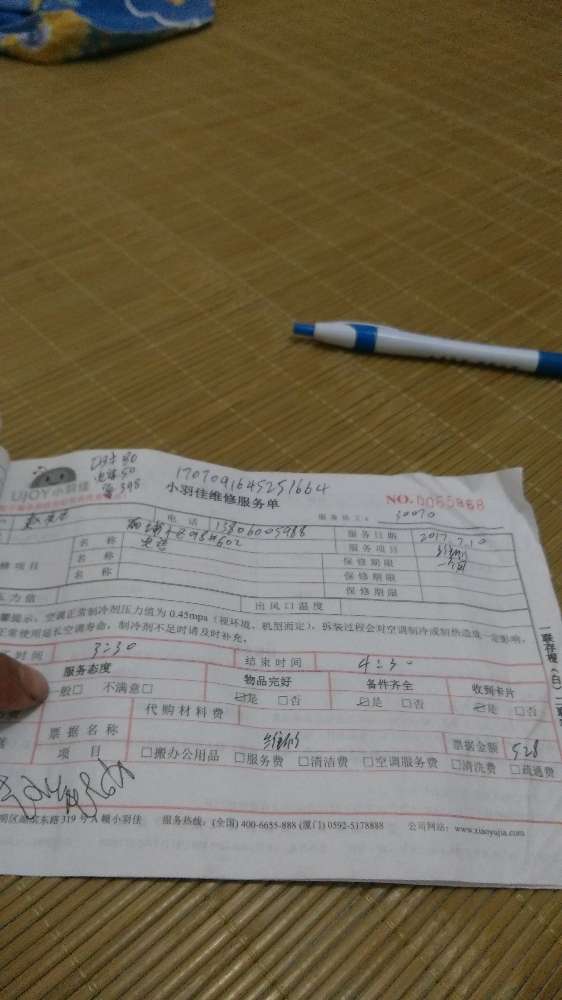 50
UJOY小羽佳
电容50
管398
1707091645251664
小羽佳维修服务单
NO.0055868
电话 13806005988
服务员工#
30070
服务日期 2017.7.10
#602
名称
服务项目
修项目
名称
保修期限
名称
保修期限
保修期限
压力值
出风口温度
馨提示:空调正常制冷剂压力值为0.45mpa(视环境、机型而定),拆装过程会对空调制冷或制热造成一定影响,
正常使用延长空调寿命,制冷剂不足时请及时补充。
时间 3:30
结束时间 4:30
服务态度
物品完好
备件齐全
收到卡片
一般□ 不满意□
☑是 □否
☑是 □否
☑是 □否
代购材料费
票据名称
维修
票据金额 528
项目
□搬办公用品 □服务费 □清洁费 □空调服务费 □清洗费 □疏通费
东路319号A幢小羽佳 服务热线:(全国)400-6655-888 (厦门)0592-5178888 公司网站:www.xiaoyujia.com
一联存根(白)二联